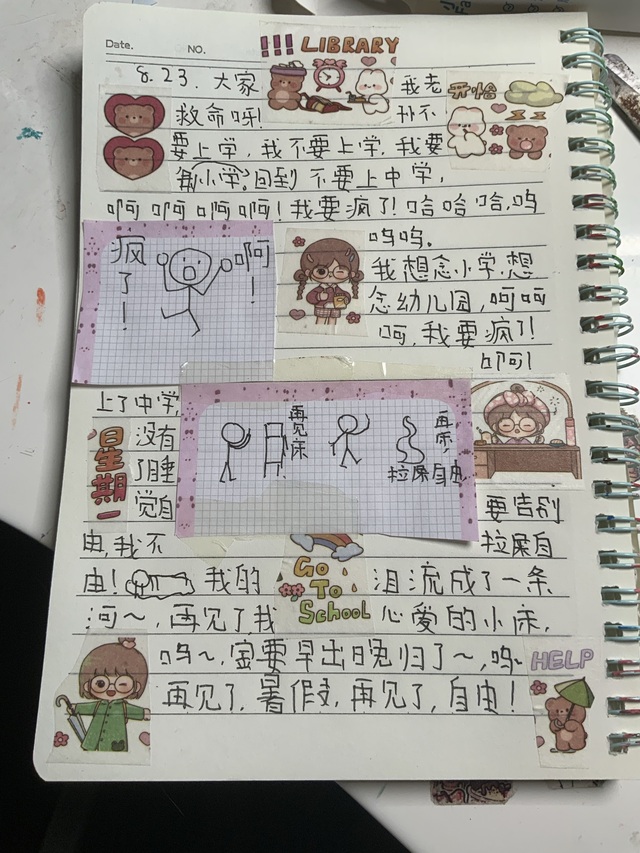 Date. NO. !!! LIBRARY
8.23. 大家 我老 开始
救命呀! 扑不
要上学,我不要上学,我要
回到小学。不要上中学,
啊啊啊啊!我要疯了!哈哈哈,呜
呜呜。
疯了! 啊!
我想念小学,想
念幼儿园,呵呵
呵,我要疯了!
啊!
上了中学,
再见床
再见,拉屎自由
星期一
没有
了睡
觉自 要告别
由,我不 拉屎自
由! 我的 Go To School 泪流成了一条
河~,再见了我 心爱的小床,
呜~,需要早出晚归了~,呜~ HELP
再见了,暑假,再见了,自由!